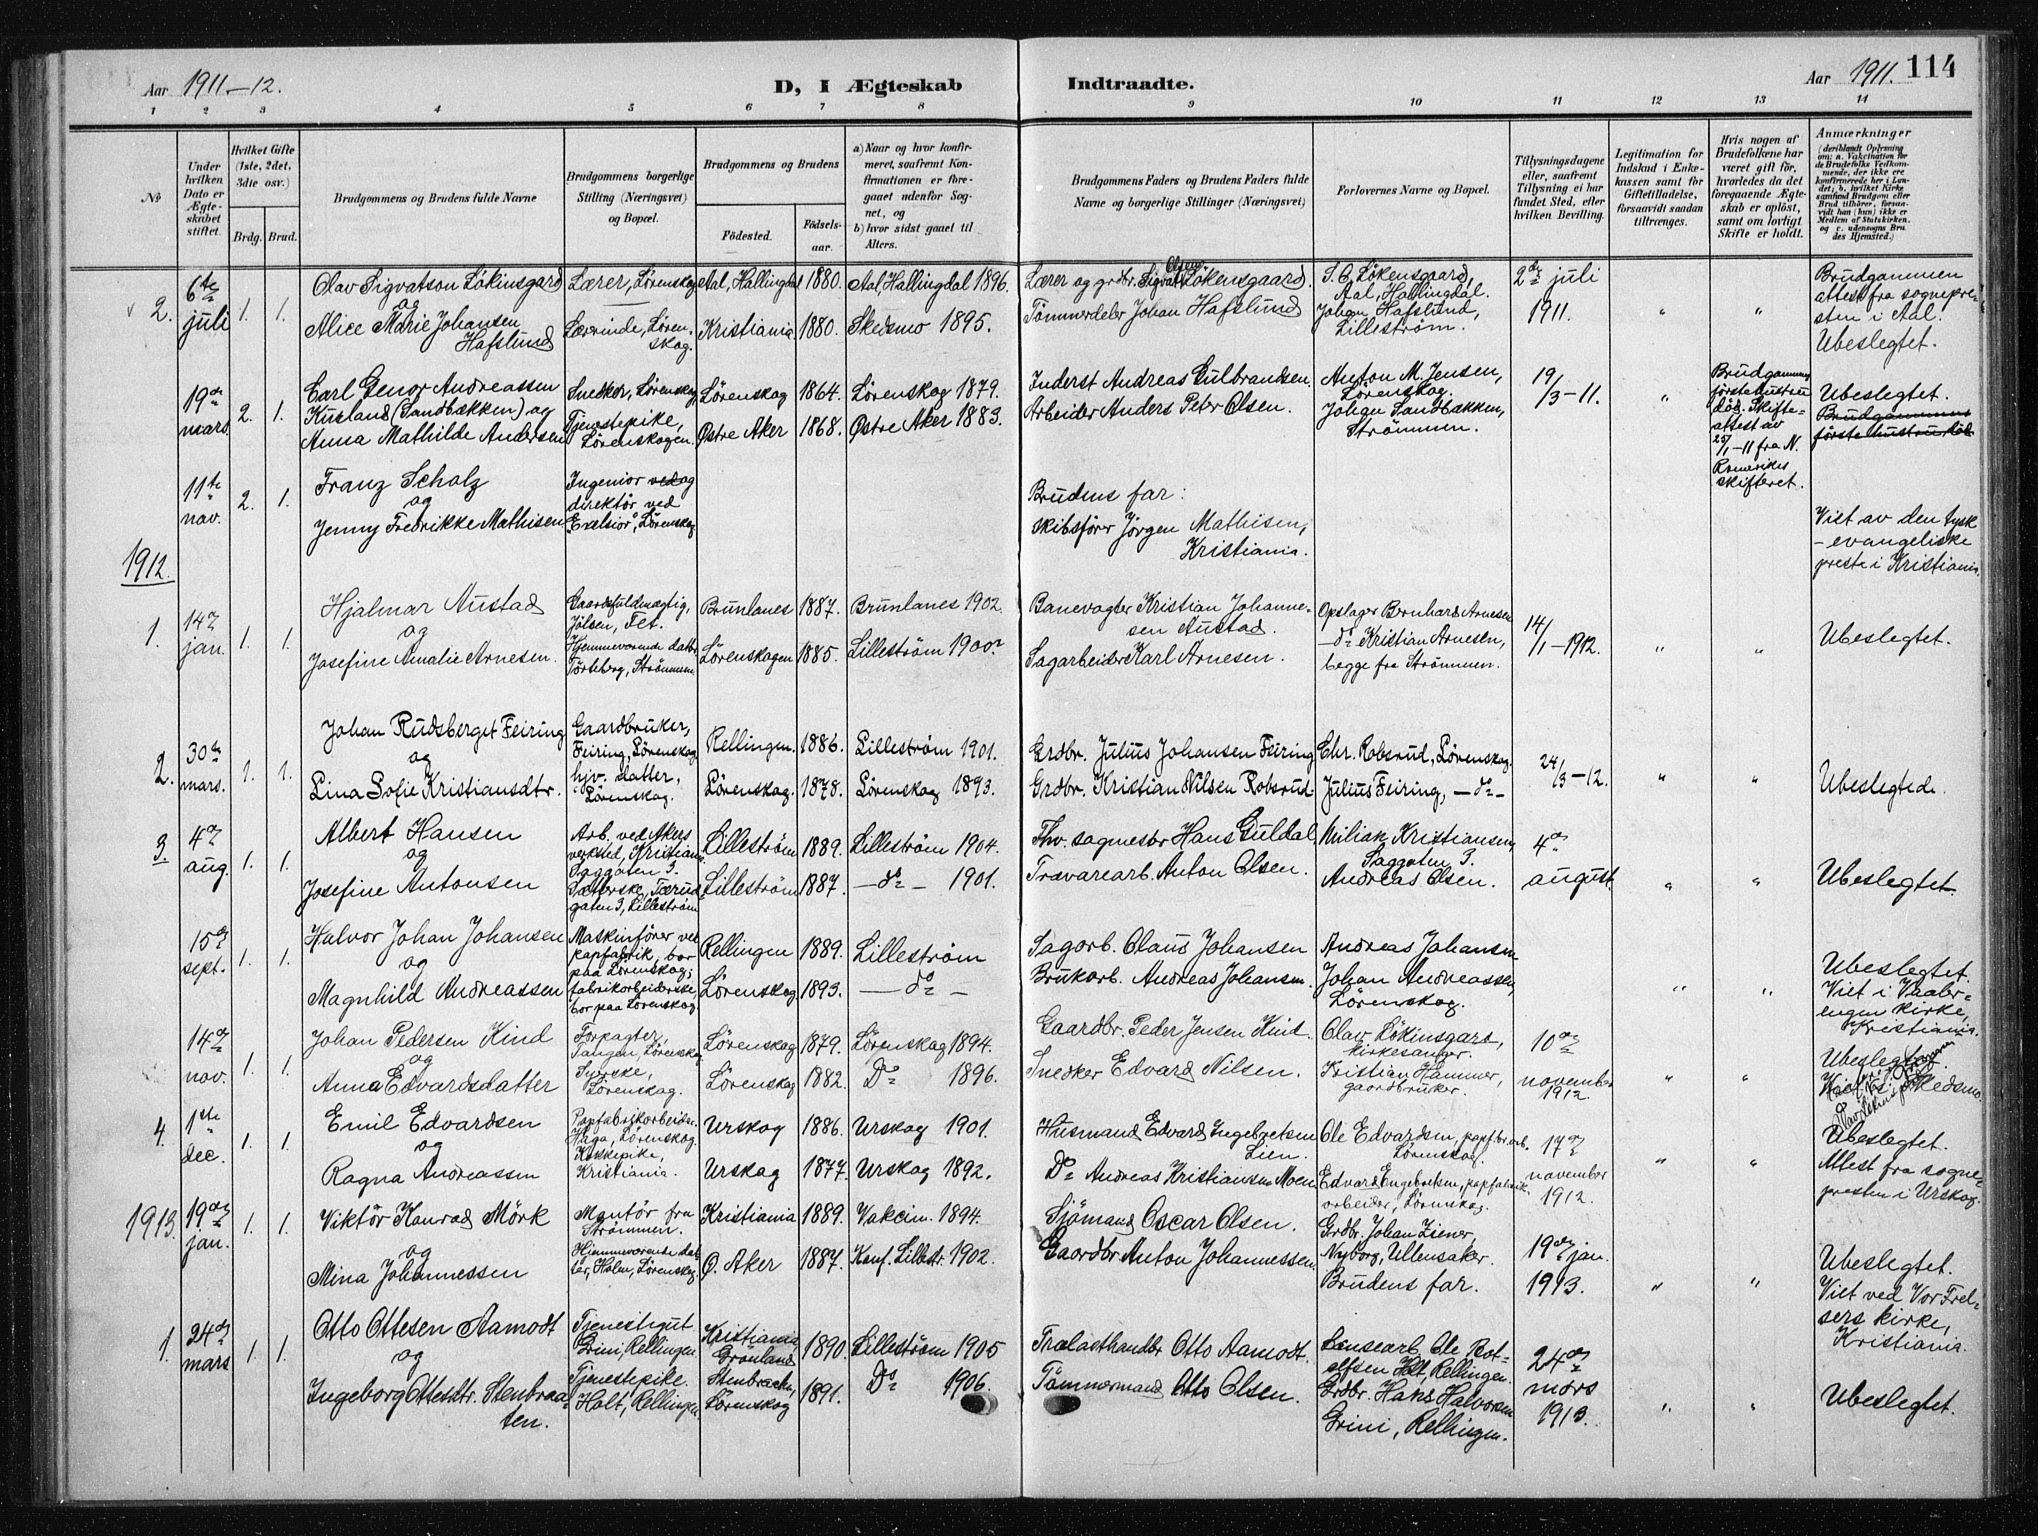 Aar 1911–12.
D, I Ægteskab Indtraadte.
Aar 1911. 114
1 2 3 4 5 6 7 8 9 10 11 12 13 14
No
Under hvilken Dato er Ægteskabet stiftet.
Hvilket Gifte (1ste, 2det, 3die osv.)
Brdg. Brud.
Brudgommens og Brudens fulde Navne
Brudgommens borgerlige Stilling (Næringsvei) og Bopæl.
Brudgommens og Brudens
Fødested. Fødselsaar.
a) Naar og hvor konfirmeret, saafremt Konfirmationen er foregaaet udenfor Sognet, og
b) hvor sidst gaaet til Alters.
Brudgommens Faders og Brudens Faders fulde Navne og borgerlige Stillinger (Næringsvei)
Forlovernes Navne og Bopæl.
Tillysningsdagene eller, saafremt Tillysning ei har fundet Sted, efter hvilken Bevilling.
Legitimation for Indskud i Enkekassen samt for Giftetilladelse, forsaavidt saadan tiltrænges.
Hvis nogen af Brudefolkene har været gift før, hvorledes da det foregaaende Ægteskab er opløst, samt om lovligt Skifte er holdt.
Anmærkninger
2. 6te juli 1. 1.
Olav Sigvatson Lökinsgard
og
Alice Marie Johansen Hafslund
Lærer, Lörenskog
Lærerinde, Lörenskog.
Aal, Hallingdal 1880. Aal, Hallingdal 1896.
Kristiania 1880. Skedsmo 1895.
Lærer og grdbr. Sigvat Olsen Lökensgaard.
Tömmerdeler Johan Hafslund
S. O. Lökensgaard, Aal, Hallingdal.
Johan Hafslund, Lilleström.
2den juli 1911.
" "
Brudgammen attest fra sognepresten i Aal. Ubeslegtet.
19de mars. 2. 1.
Carl Genor Andreassen Kusland (Sandbækken) og
Anna Mathilde Andersen
Snedker, Lörenskog
Tjenestepike, Lörenskogen.
Lörenskog 1864. Lörenskog 1879.
Østre Aker 1868. Østre Aker 1883.
Inderst Andreas Gulbrandsen.
Arbeider Anders Petr Olsen.
Anton M. Jensen, Lörenskog.
Johan Sandbækken, Strömmen.
19/3–11.
"
Brudgammens förstehustru död. Skifteattest av 25/1–11 fra N. Romerikes skifteret.
Ubeslegtet.
Brudgammens förstehustru död
11te nov. 2. 1.
Franz Scholz
og
Jenny Fredrikke Mathisen
Ingeniør ved og direktör ved Exelsior, Lörenskog
Brudens far:
skibsförer Jörgen Mathisen, Kristiania.
Viet av den tysk–evangeliske prest i Kristiania.
1912.
1. 14de jan. 1. 1.
Hjalmar Austad
og
Josefine Amalie Arnesen.
Gaardsfuldmægtig, Jölsen, Fet.
Hjemmeværende datter Törteberg, Strömmen.
Brunlanes 1887. Brunlanes 1902.
Lörenskogen 1885. Lilleström 1900.
Banevogter Kristian Johannesen Austad.
Sagarbeider Karl Arnesen.
Opslager Bernhard Arnesen
–do Kristian Arnesen, begge fra Strömmen.
14/1–1912.
" "
Ubeslegtet.
2. 30de mars. 1. 1.
Johan Rudsberget Feiring
og
Lina Sofie Kristiansdtr.
Gaardbruker, Feiring, Lörenskog
hjv. datter, Lörenskog.
Rellingen. 1886. Lilleström 1901.
Lörenskog. 1878. Lörenskog 1893.
Grdbr. Julius Johansen Feiring
Grdbr. Kristian Nilsen Robsrud.
Chr. Robsrud, Lörenskog.
Julius Feiring, –do–
24/3–12.
" "
Ubeslegtede.
3. 4de aug. 1. 1.
Albert Hansen
og
Josefine Antonsen
Arb. ved Akers verksted, Kristiania Saggaten 3.
gaten 3, Lilleström
Lilleström 1889. Lilleström 1904.
Lilleström 1887. –do– 1901.
Fhv. sagmester Hans Guldal
Trævarearb. Anton Olsen.
Kristiansen, Saggaten 3.
Andreas Olsen.
4de august.
" "
Ubeslegtet.
15de sept. 1. 1.
Halvor Johan Johansen
og
Magnhild Andreassen
Maskinförer ved papfabrik, bor paa Lörenskog;
fabrikarbeiderske, bor paa Lörenskog.
Rellingen 1889. Lilleström
Lörenskog 1893. –do–
Sagarb. Claus Johansen
Brukarb. Andreas Johansen.
Andreas Johansen
Johan Andreassen, Lörenskog.
" "
Ubeslegtet. Viet i Vaalerengen kirke, Kristiania.
14de nov. 1. 1.
Johan Pedersen Kind
og
Anna Edvardsdatter
Forpagter, Tangen, Lörenskog
Syerske, Lörenskog.
Lörenskog 1879. Lörenskog 1894.
Lörenskog 1882. Do 1896.
Gaardbr. Peder Jensen Kind.
Snedker Edvard Nilsen.
Olav Lökinsgard, kirkesanger.
Kristian Hammer, gaardbruker.
10de november 1912.
" "
Ubeslegtet
Skedsmo.
4. 1ste dec. 1. 1.
Emil Edvardsen
og
Ragna Andreassen
Papfabrikarbeider Haga, Lörenskog.
Kokkepike, Kristiania.
Urskog 1886. Urskog 1901.
Urskog 1877. Urskog 1892.
Husmand Edvard Ingebretsen Lien.
Do Andreas Kristiansen Moen
Ole Edvardsen, papfbr.arb. Lörenskog.
Edvard Engebretsen, papfabrikarbeider, Lörenskog.
17de november 1912.
" "
Ubeslegtet. Attest fra sognepresten i Urskog.
1913. 19de jan. 1. 1.
Viktor Konrad Mörk
og
Mina Johannessen
Montör fra Strömmen.
Hjemmeværende datter, Holen, Lörenskog
Kristiania 1889. Vakcin. 1894.
Ø. Aker 1887. Konf. Lillestr. 1902.
Sjömand Oscar Olsen.
Gaardbr Anton Johannessen.
Grdbr. Johan Ziener, Nyborg, Ullensaker.
Brudens far.
19de jan. 1913.
" "
Ubeslegtet. Viet ved Vor Frelsers kirke, Kristiania.
1. 24de mars 1. 1.
Otto Ottesen Aamodt
og
Ingeborg Ottesdtr. Stenbraaten.
Tjenestgut Grini, Rellingen
Tjenestepike. Holt, Rellingen
Kristiania, Grönland 1890. Lilleström 1905
Stenbraaten, Lörenskog 1891. Do 1906.
Trælasthandler Otto Aamodt.
Tömmermand Otto Olsen.
Ole Rotolfsen Holt, Rellingen.
Grdbr. Hans Halvorsen Grini, Rellingen.
24de mars 1913.
" "
Ubeslegtet.